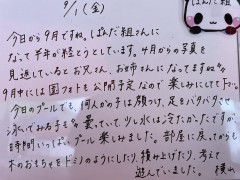 9/1(金)
ぱんだ組
今日から9月ですね。ぱんだ組さんに
なって半年が経とうとしています。4月からの写真を
見返しているとお兄さん、お姉さんになってますね
9月中には園フォトも公開予定なので楽しみにして下さい
今日のプールでも、何人かの子は顔つけ、足をバタバタさせ
泳いでみる子も 曇っていて少し水は冷たかたですが
時間いっぱいプール楽しみました。部屋に戻ってからも
木のおもちゃをドミノのようにしたり、積み上げたり、考えて
遊んでいました。 横山